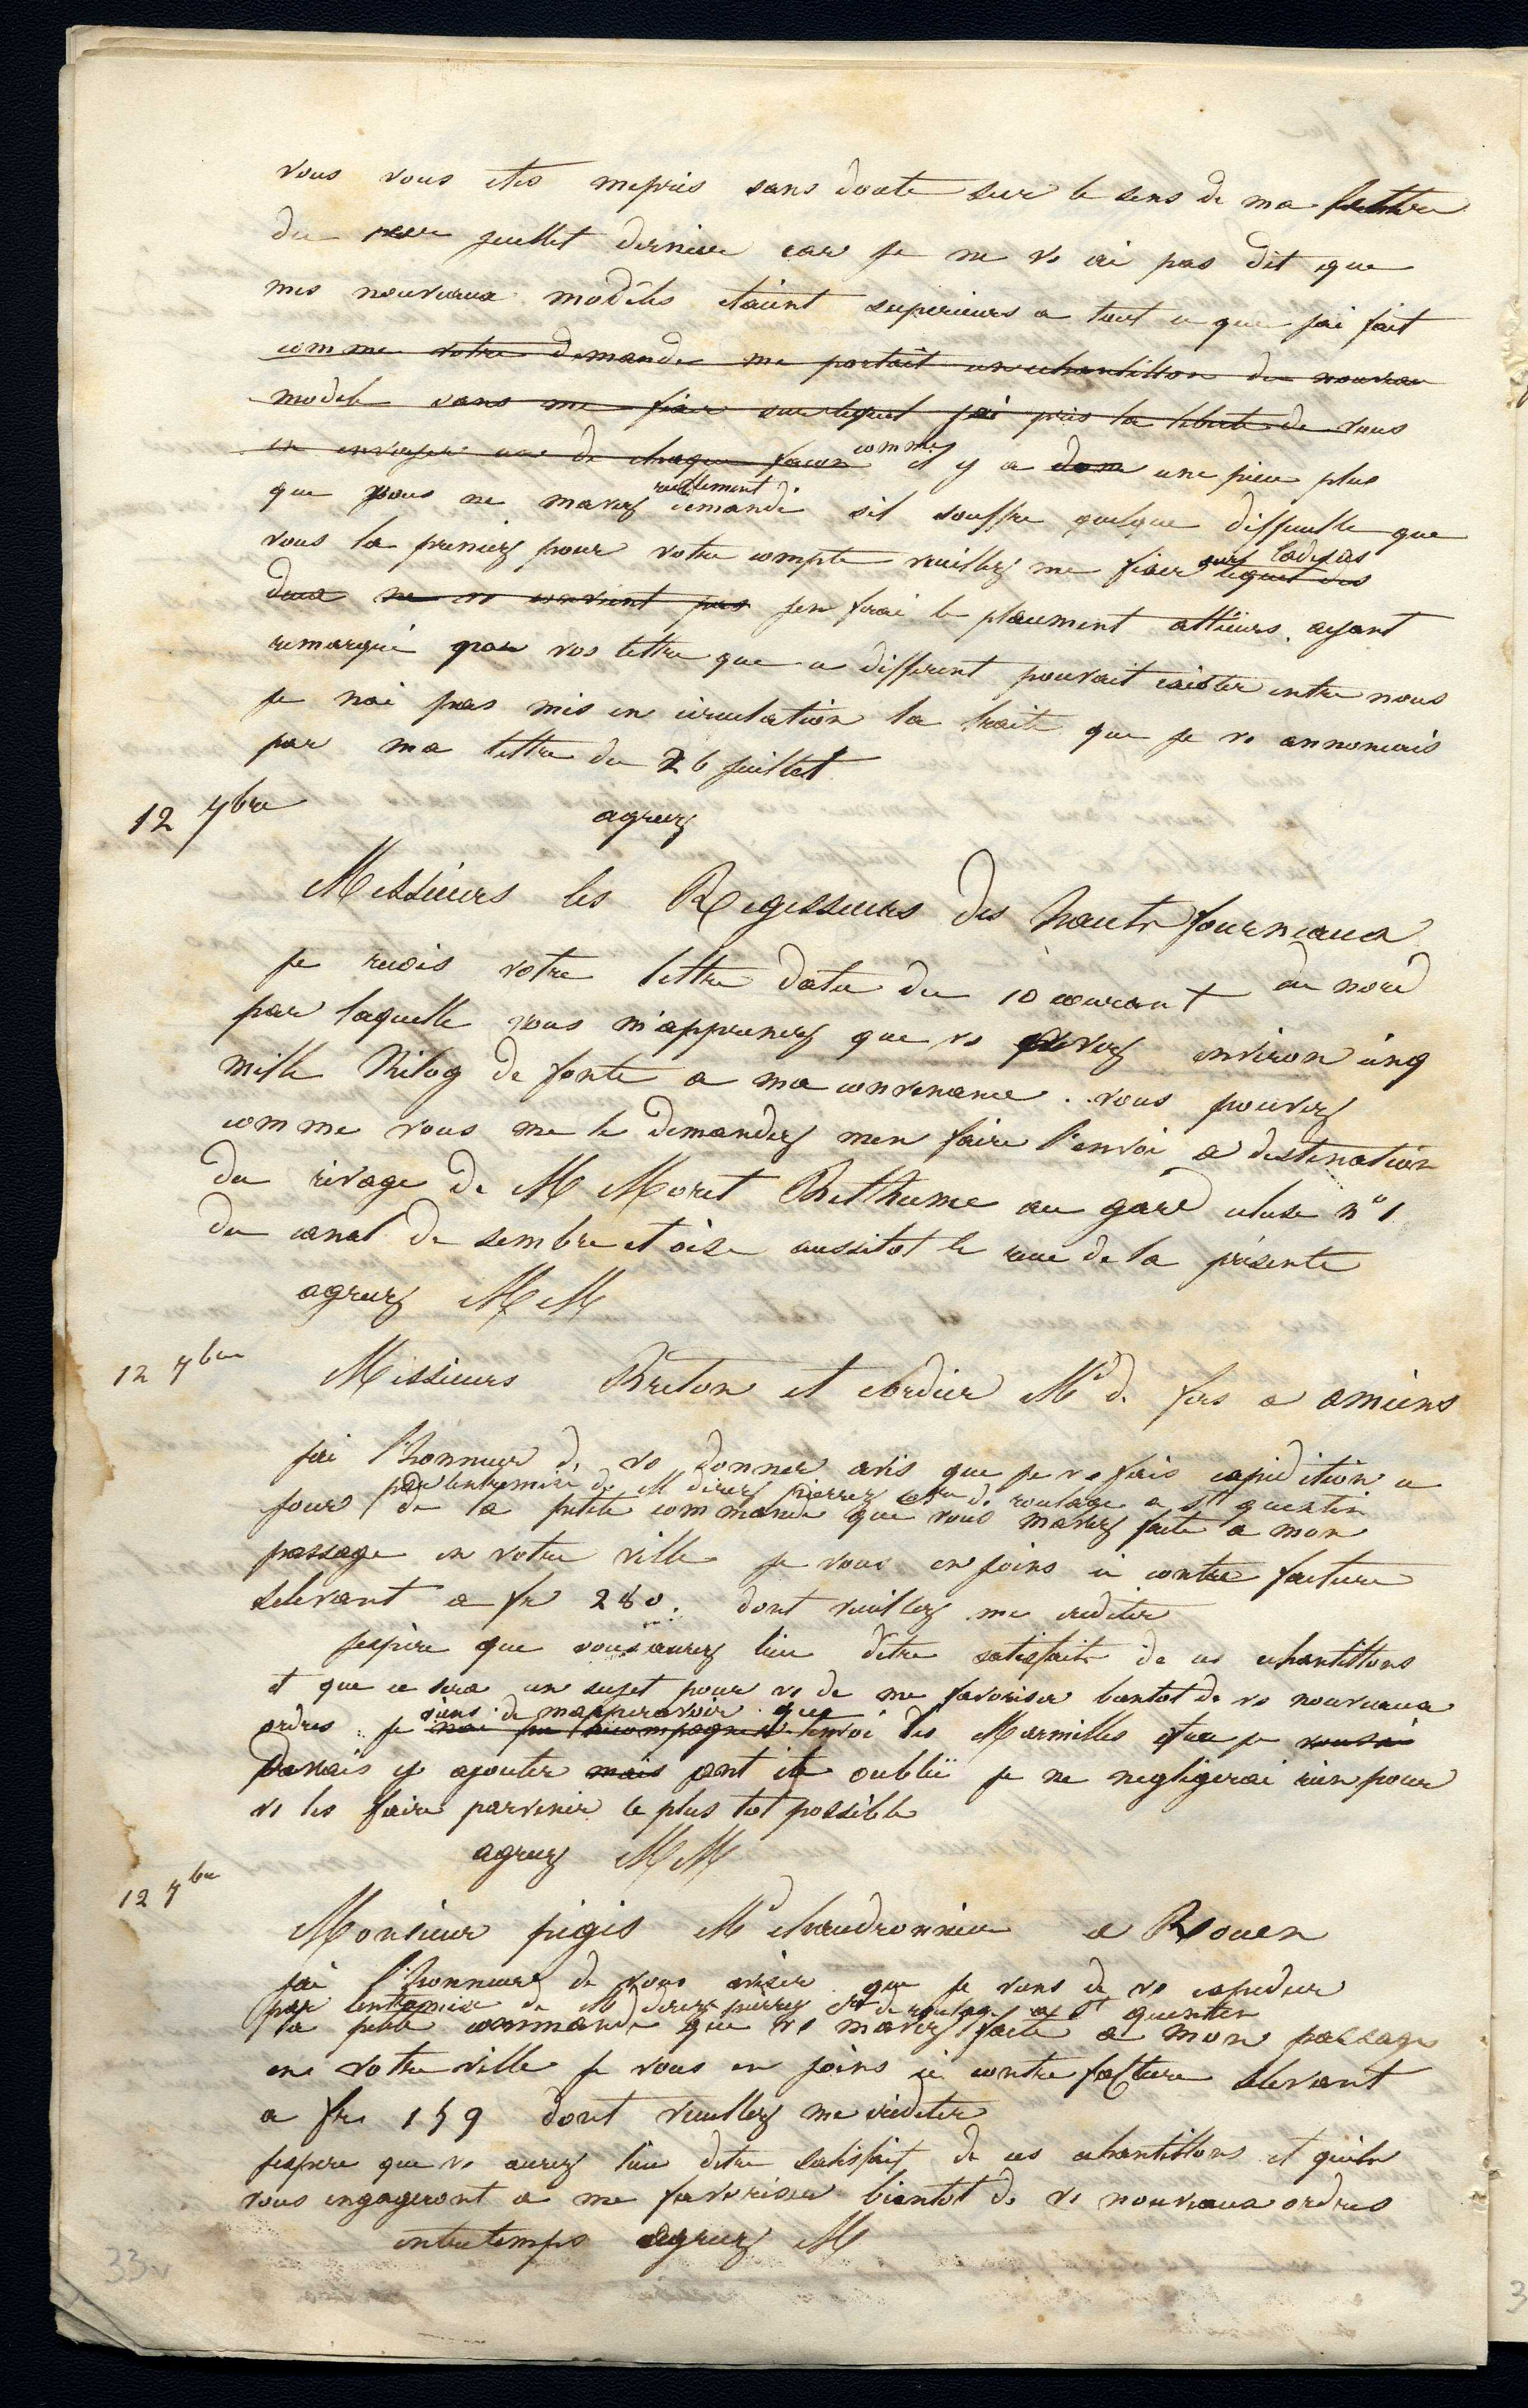 vous vous etes mepris sans doute sur le sens de ma lettre
du juillet dernier car je ne vs ai pas dit que
mes nouveaux modèles etaient superieurs a tout ce que jai fait
comme votre demande me portait un echantillon du nouveau
modele sans me fixer sur lequel jai pris la liberté de vous
en envoyer une de chaque facon comme il y a dom une piece plus
que vous ne mavez reellement demandé sil souffre quelque difficulté que
vous la preniez pour votre compte veuillez me fixer lequel des
deux ne vs convient pas jen ferai le placement allieurs. ayant
remarqué par vos lettre que ce different pouvait exister entre nous
je nai pas mis en circulation la traite que je vs annoncais
par ma lettre du 26 juillet
agreez
12 7bre
Messieurs les Regisseurs des hauts fourneaux
du nord
je recois votre lettre datée du 10 courant
par laquelle vous m'apprenez que vs avez environ cinq
mille Kilog de fonte a ma convenance. vous pouvez
comme vous me le demandez men faire l'envoi a destination
du rivage de M Moret Bethume au gard ecluse n° 1
du canal de sembre et oise aussitot le recue de la présente
agreez MM
12 7bre
Messieurs Breton et Cordier Md de fers a amiens
jai l'honneur de vs donner avis que je vs fais expedition ce
jour par lentremise de M direz pierrez Cre de roulage a st quentin
de la petite commande que vous mavez faite a mon
passage en votre ville je vous en joins ci contre facture
selevant a fr 280. dont veuillez me crediter
jespère que vous aurez lieu detre satisfaits de ces echantillons
et que ce sera un sujet pour vs de me favoriser bientot de vs nouveaux
ordres. je viens de mappercevoir que
nai pu accompagner lenvoi des Marmittes que je vous ai
devais y ajouter mais ont ete oublié je ne negligerai rien pour
vs les faire parvenir le plus tot possible
agreez MM
12 7bre
Monsieur pigis Md chaudronnier a Rouen
jai l'honneur de vous aviser que je viens de vs expedier
par lentremise de M direz pierrez Cre de roulage a St quentin
la petite commande que vs mavez faite a mon passage
en votre ville je vous en joins ci contre facture selevant
a frs 159 dont veuillez me crediter
jespere que vs aurez lieu detre satisfait de ces echantillons et quils
vous engageront a me favoriser bientot de vs nouveaux ordres
entretemps agreez M
33v